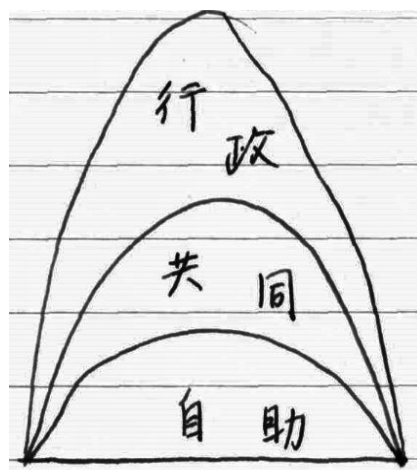 行政
共同
自助